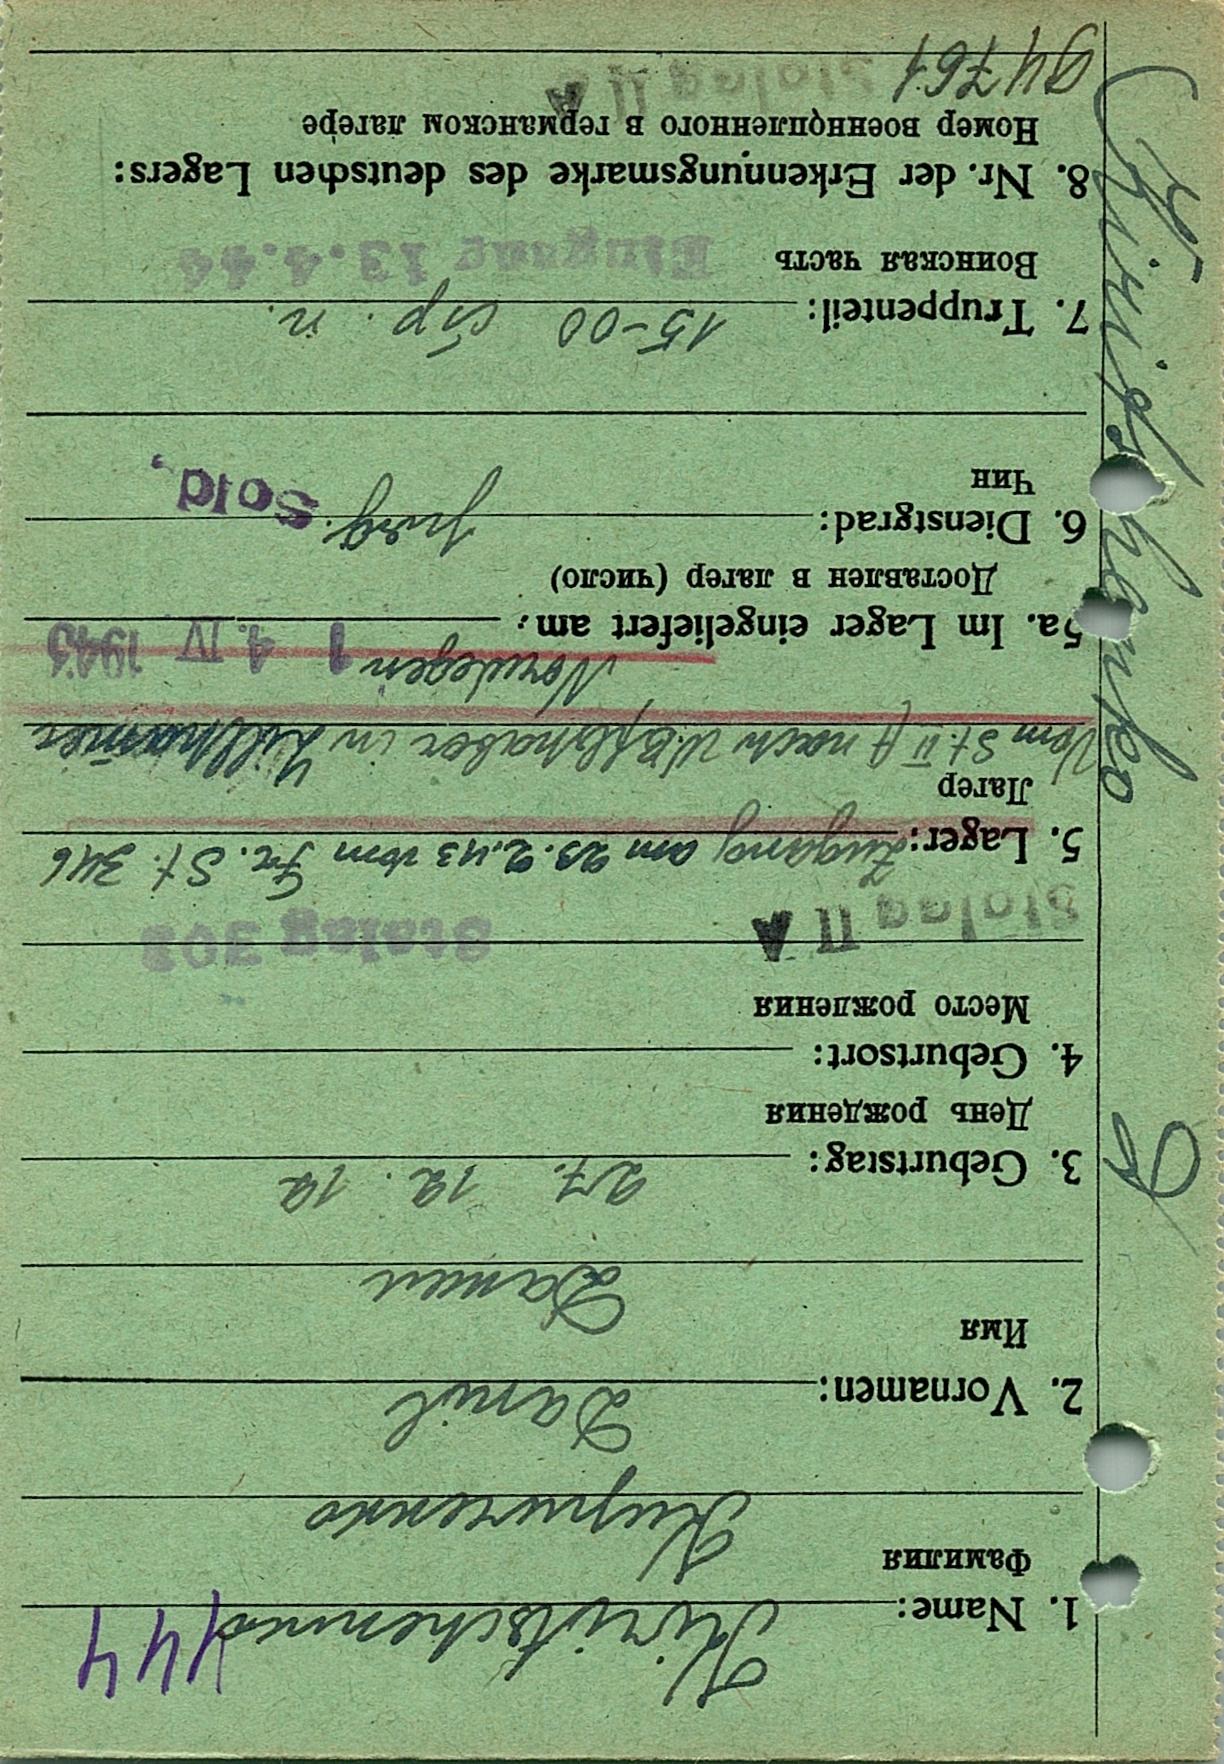 444
1. Name: Kiritschenko
Фамилия
Кириченко
2. Vornamen: Danil
Имя
Данил
3. Geburtstag: 27. 12. 12
День рождения
4. Geburtsort:
Место рождения
Stalag II A Stalag 303
5. Lager: Zugang am 23.2.43 vom Fr. St. 346
Лагер
Vom St. II A nach W. Bflshaber in Lillhamer
Norwegen 1 4. IV 1943
5a. Im Lager eingeliefert am:
Доставлен в лагер (число)
6. Dienstgrad: Sold.
Чин
7. Truppenteil: 15-00 стр. п.
Воинская часть
Eingang 13.4.44
8. Nr. der Erkennungsmarke des deutschen Lagers:
Номер военнопленного в германском лагере
94761 Stalag II A